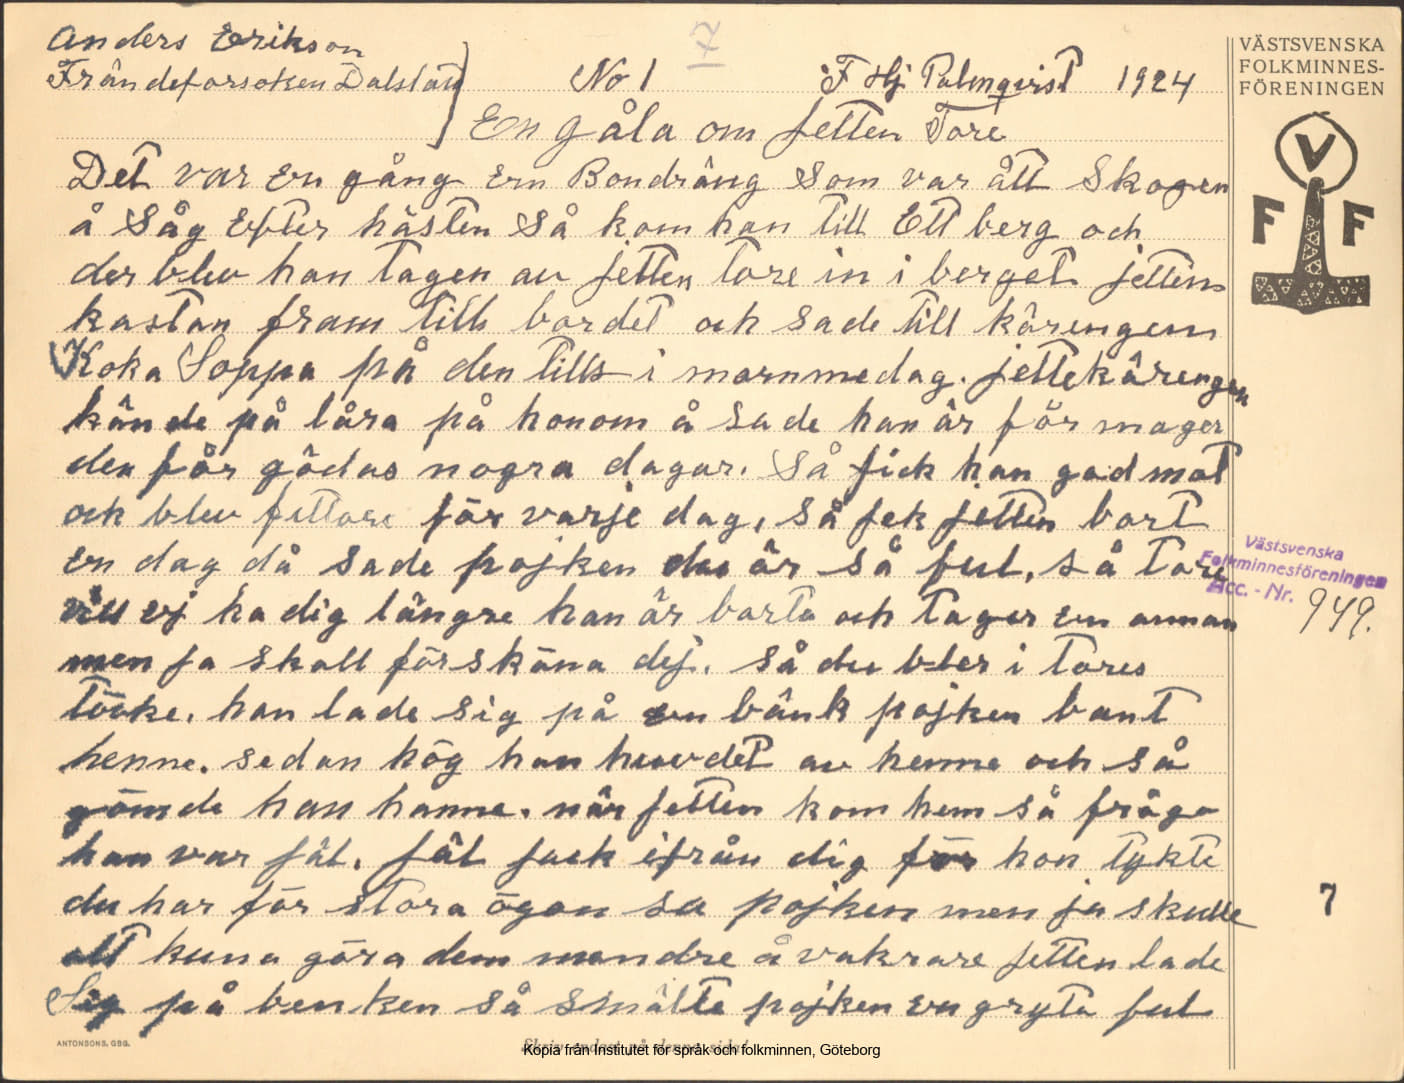 Anders Erikson
Från deforsoken Dalslan
No 1
F Hj Palmqvist 1924
En gåla om jetten Tore
Det var en gång em Bondräng Som var ått Skogen
å Såg Efter hästen Så kom han till Ett berg och
der blev han tagen av jetten Tore in i berget jetten
kastan fram till bordet och sade till käringen
Koka Soppa på den tills i mornmedag. jettekäringen
kände på låra på honom å sade han är för mager
den får gödas nogra dagar. Så fick han god mat
och blev fettare för varje dag, så fek jetten bort
en dag då sade pojken du är så ful, så Tore
vill ej ha dig längre han är borta och tager en annan
men ja skall förskäna dej. så du bler i Tores
töcke. han lade sig på en bänk pojken bant
henne. sedan hög han huvdet av henne och så
gömde han hanne. när jetten kom hem så fråga
han var fäl. fäl jack ifrån dig för hon tykte
du har för stora ögon sa pojken men ja skulle
alt kuna göra dem mendre å vakrare jetten lade
Sig på benken så smälte pojken en gryta ful
VÄSTSVENSKA
FOLKMINNES-
FÖRENINGEN
V
F F
Västsvenska
Folkminnesföreningen
Acc. - Nr. 949.
7
ANTONSONS, GBG.
Skriv endast på denna sida!
Kopia från Institutet för språk och folkminnen, Göteborg